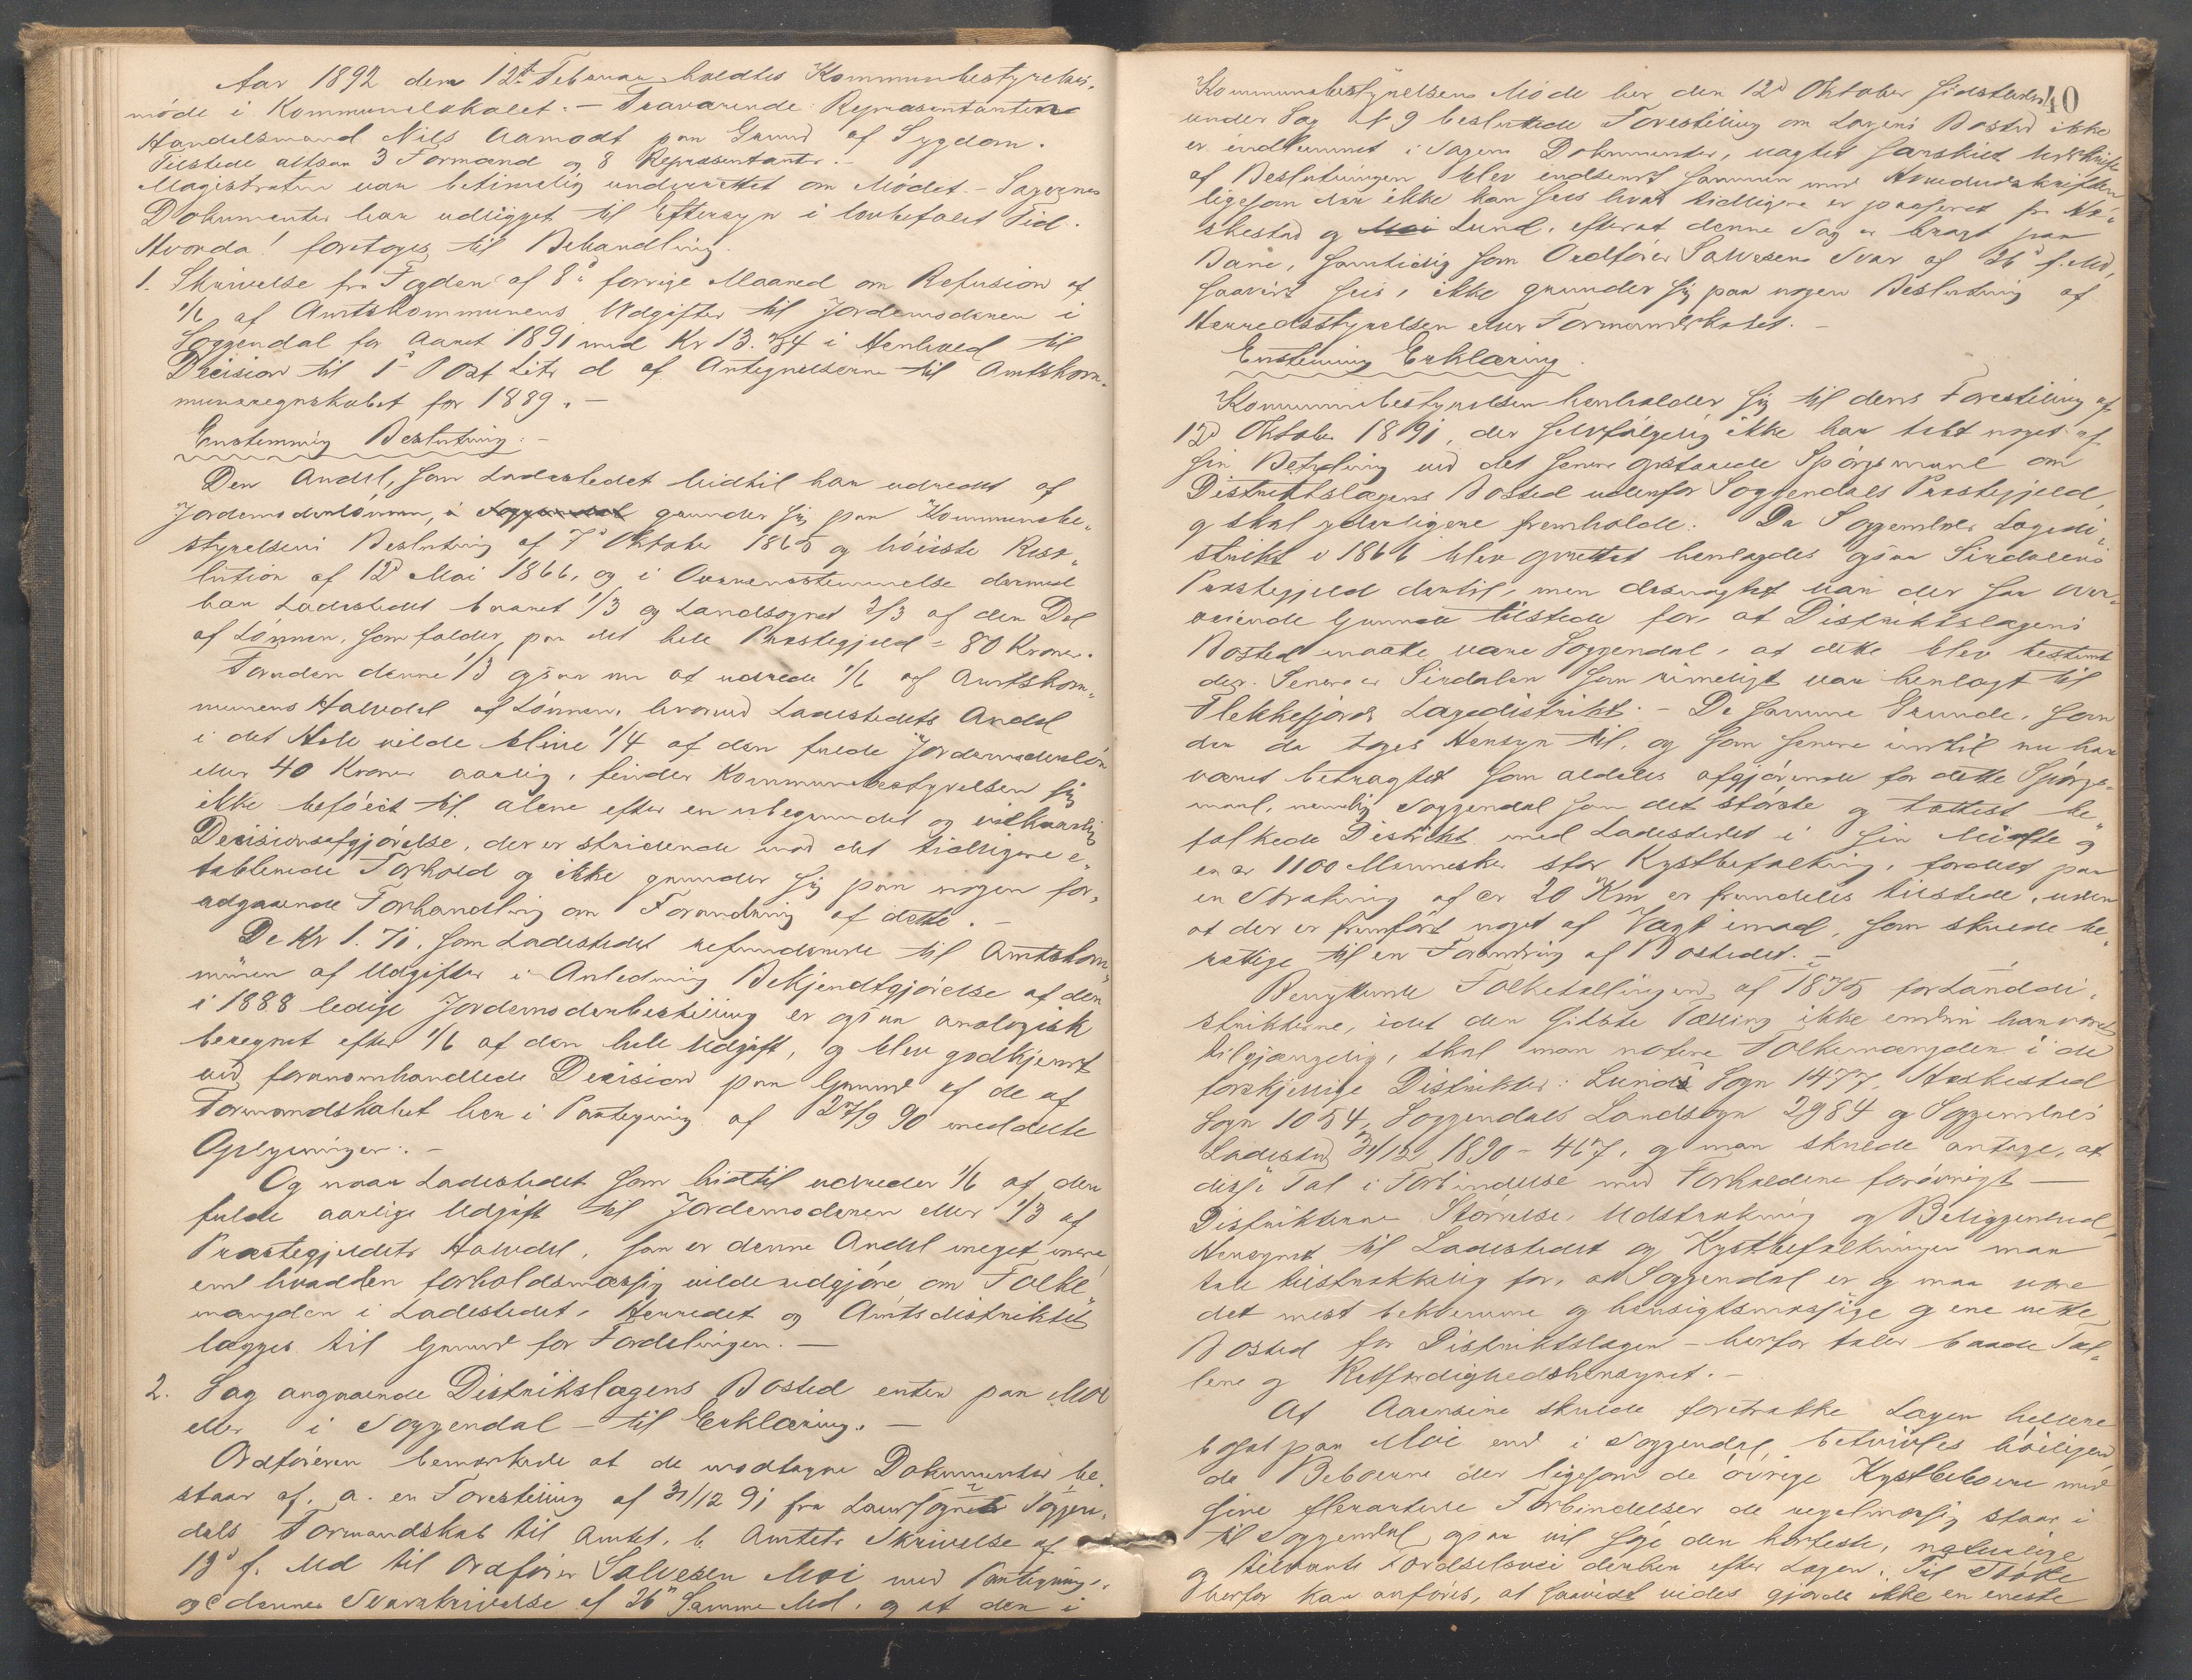 Aar 1892 den 12te Februar holdtes Kommunebestyrelses-
møde i Kommunelokalet. – Fraværende Repræsentanterne
Handelsmand Nils Aamodt paa Grund af Sygdom.
Tilstede altsaa 3 Formænd og 8 Repræsentanter. –
Magistraten var betimelig underrettet om Mødet. – Sagernes
Dokumenter har udligget til Eftersyn i lovbefalet Tid.
Hvorda foretoges til Behandling.
1. Skrivelse fra Fogden af 8de forrige Maaned om Refusion af
1/6 af Amtskommunens Udgifter til Jordemoderen i
Soggendal for Aaret 1891 med Kr 13.34 i Henhold til
Decision til 1ste Post Litr d af Antegnelserne til Amtskom-
muneregnskabet for 1889. –
Enstemmig Beslutning: –
Den Andel, som Ladestedet hidtil har udredet af
Jordemoderlønnen, i Soggendal grunder sig paa Kommunebe-
styrelsens Beslutning af 7de Oktober 1865 og høieste Reso-
lution af 12te Mai 1866, og i Overensstemmelse dermed
har Ladestedet baaret 1/3 og Landsognet 2/3 af den Del
af Lønnen, som falder paa det hele Præstegjeld = 80 Kroner.
Foruden denne 1/3 ogsaa nu at udrede 1/6 af Amtskom-
munens Halvdel af Lønnen, hvorved Ladestedets Andel
i det Hele vilde blive 1/4 af den fulde Jordemoderløn
eller 40 Kroner aarlig, finder Kommunebestyrelsen sig
ikke beføiet til alene efter en ubegrundet og vilkaarlig
Decisionsafgjørelse, der er stridende mod det tidligere e-
tablerede Forhold og ikke grunder sig paa nogen for-
udgaaende Forhandling om Forandring af dette. –
De Kr 1.71, som Ladestedet refunderede til Amtskom-
munen af Udgifter i Anledning Bekjendtgjørelse af den
i 1888 ledige Jordemoderbestilling er ogsaa analogisk
beregnet efter 1/6 af den hele Udgift, og blev godkjendt
ved foranomhandlede Decision paa Grund af de af
Formandskabet her i Paategning af 27/9 90 meddelte
Oplysninger. –
Og naar Ladestedet som hidtil udreder 1/6 af den
fulde aarlige Udgift til Jordemoderen eller 1/3 af
Præstegjeldets Halvdel, saa er denne Andel meget mere
end hvad den forholdsmæssig vilde udgjøre om Folke-
mængden i Ladestedet, Herredet og Amtsdistriktet
lægges til Grund for Fordelingen. –
2. Sag angaaende Distriktslægens Bosted enten paa Moi
eller i Soggendal – til Erklæring. –
Ordføreren bemærkede at de modtagne Dokumenter be-
staar af, a. en Forestilling af 31/12 91 fra Landsognets Soggen-
dals Formandskab til Amtet, b. Amtets Skrivelse af
19de f. Md til Ordfører Salvesen Moi med Paategning,
og c dennes Svarskrivelse af 26de Samme Md. og at den i
Kommunebestyrelsens Møde her den 12te Oktober sidstleden 40
under Sag № 9 besluttede Forestilling om Lægens Bosted ikke
er indkommet i Sagens Dokumenter, uagtet særskilt Udskrift
af Beslutningen blev indsendt sammen med Hovedudskriften
ligesom der ikke kan sees hvad tidligere er passeret fra He-
skestad og Moi Lund, efterat denne Sag er bragt paa
Bane, samtidig som Ordfører Salvesens Svar af 26de f. Md,
saavidt sees, ikke grunder sig paa nogen Beslutning af
Herredsstyrelsen eller Formandskabet. –
Enstemmig Erklæring.
Kommunebestyrelsen henholder sig til dens Forestilling af
12te Oktober 1891, der selvfølgelig ikke har tabt noget af
sin Betydning ved det senere opstaaede Spørgsmaal om
Distriktslægens Bosted udenfor Soggendals Præstegjeld,
og skal yderligere fremholde: Da Soggendals Lægedi-
strikt i 1866 blev oprettet henlagdes ogsaa Sirdalens
Præstegjeld dertil, men desuagtet var der saa over-
veiende Grunde tilstede for, at Distriktslægens
Bosted maatte være Soggendal, at dette blev bestemt
der. Senere er Sirdalen som rimeligt var henlagt til
Flekkefjords Lægedistrikt. – De samme Grunde, som
der da toges Hensyn til, og som senere indtil nu har
været betragtet som aldeles afgjørende for dette Spørgs-
maal, nemlig Soggendal som det største og tættest be-
folkede Distrikt med Ladestedet i sin Midte og
en ca 1100 Mennesker stor Kystbefolkning, fordelt paa
en Strækning af ca 20 Km er fremdeles tilstede, uden
at der er fremført noget af Vægt imod, som skulde be-
rettige til en Forandring af Bostedet. –
Benyttende Folketællingen af 1875 for Landdi-
strikterne, idet den sidste Tælling ikke endnu har været
tilgjængelig, skal man notere Folkemængden i de
forskjellige Distrikter: Lunds Sogn 1477, Heskestad
Sogn 1054, Soggendals Landsogn 2984 og Soggendals
Ladested 31/12 1890 – 467, og man skulde antage, at
disse Tal i Forbindelse med Forholdene forøvrigt –
Distrikternes Størrelse, Udstrækning og Beliggenhed
Hensynet til Ladestedet og Kystbefolkningen maa
tale tilstrækkelig for, at Soggendal er og maa være
det mest bekvemme og hensigtsmæssige og ene rette
Bosted for Distriktslægen – herfor taler baade Tal-
lene og Retfærdighedshensynet. –
At Aaensire skulde foretrække Lægen hellere
bosat paa Moi end i Soggendal, betvivles høiligen,
da Beboerne der ligesom de øvrige Kystbeboere med
sine flerartede Forbindelser de regelmæssig staar i
til Soggendal, ogsaa vil søge den korteste, naturlige
og tilvante Færdselsvei derhen efter Lægen. Til Støtte
herfor kan anføres, at saavidt vides gjorde ikke en eneste